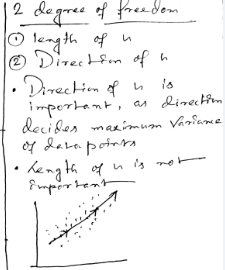 2 degree of freedom
① length of u
② Direction of u
• Direction of u is
important, as direction
decides maximum Variance
of data points
• Length of u is not
important